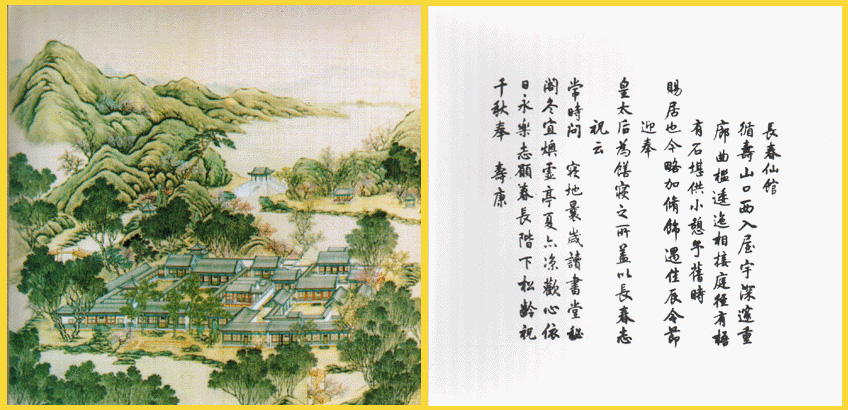 長春仙館
循壽山口西入屋宇深邃重
廊曲檻逶迤相接庭徑有梧
有石堪供小憩予舊時
賜居也今略加修飾遇佳辰令節
迎奉
皇太后為膳寢之所蓋以長春志
祝云
常時問寢地曩歲讀書堂秘
閣冬宜燠虛亭夏亦涼歡心依
日永樂志願春長階下松齡祝
千秋奉壽康